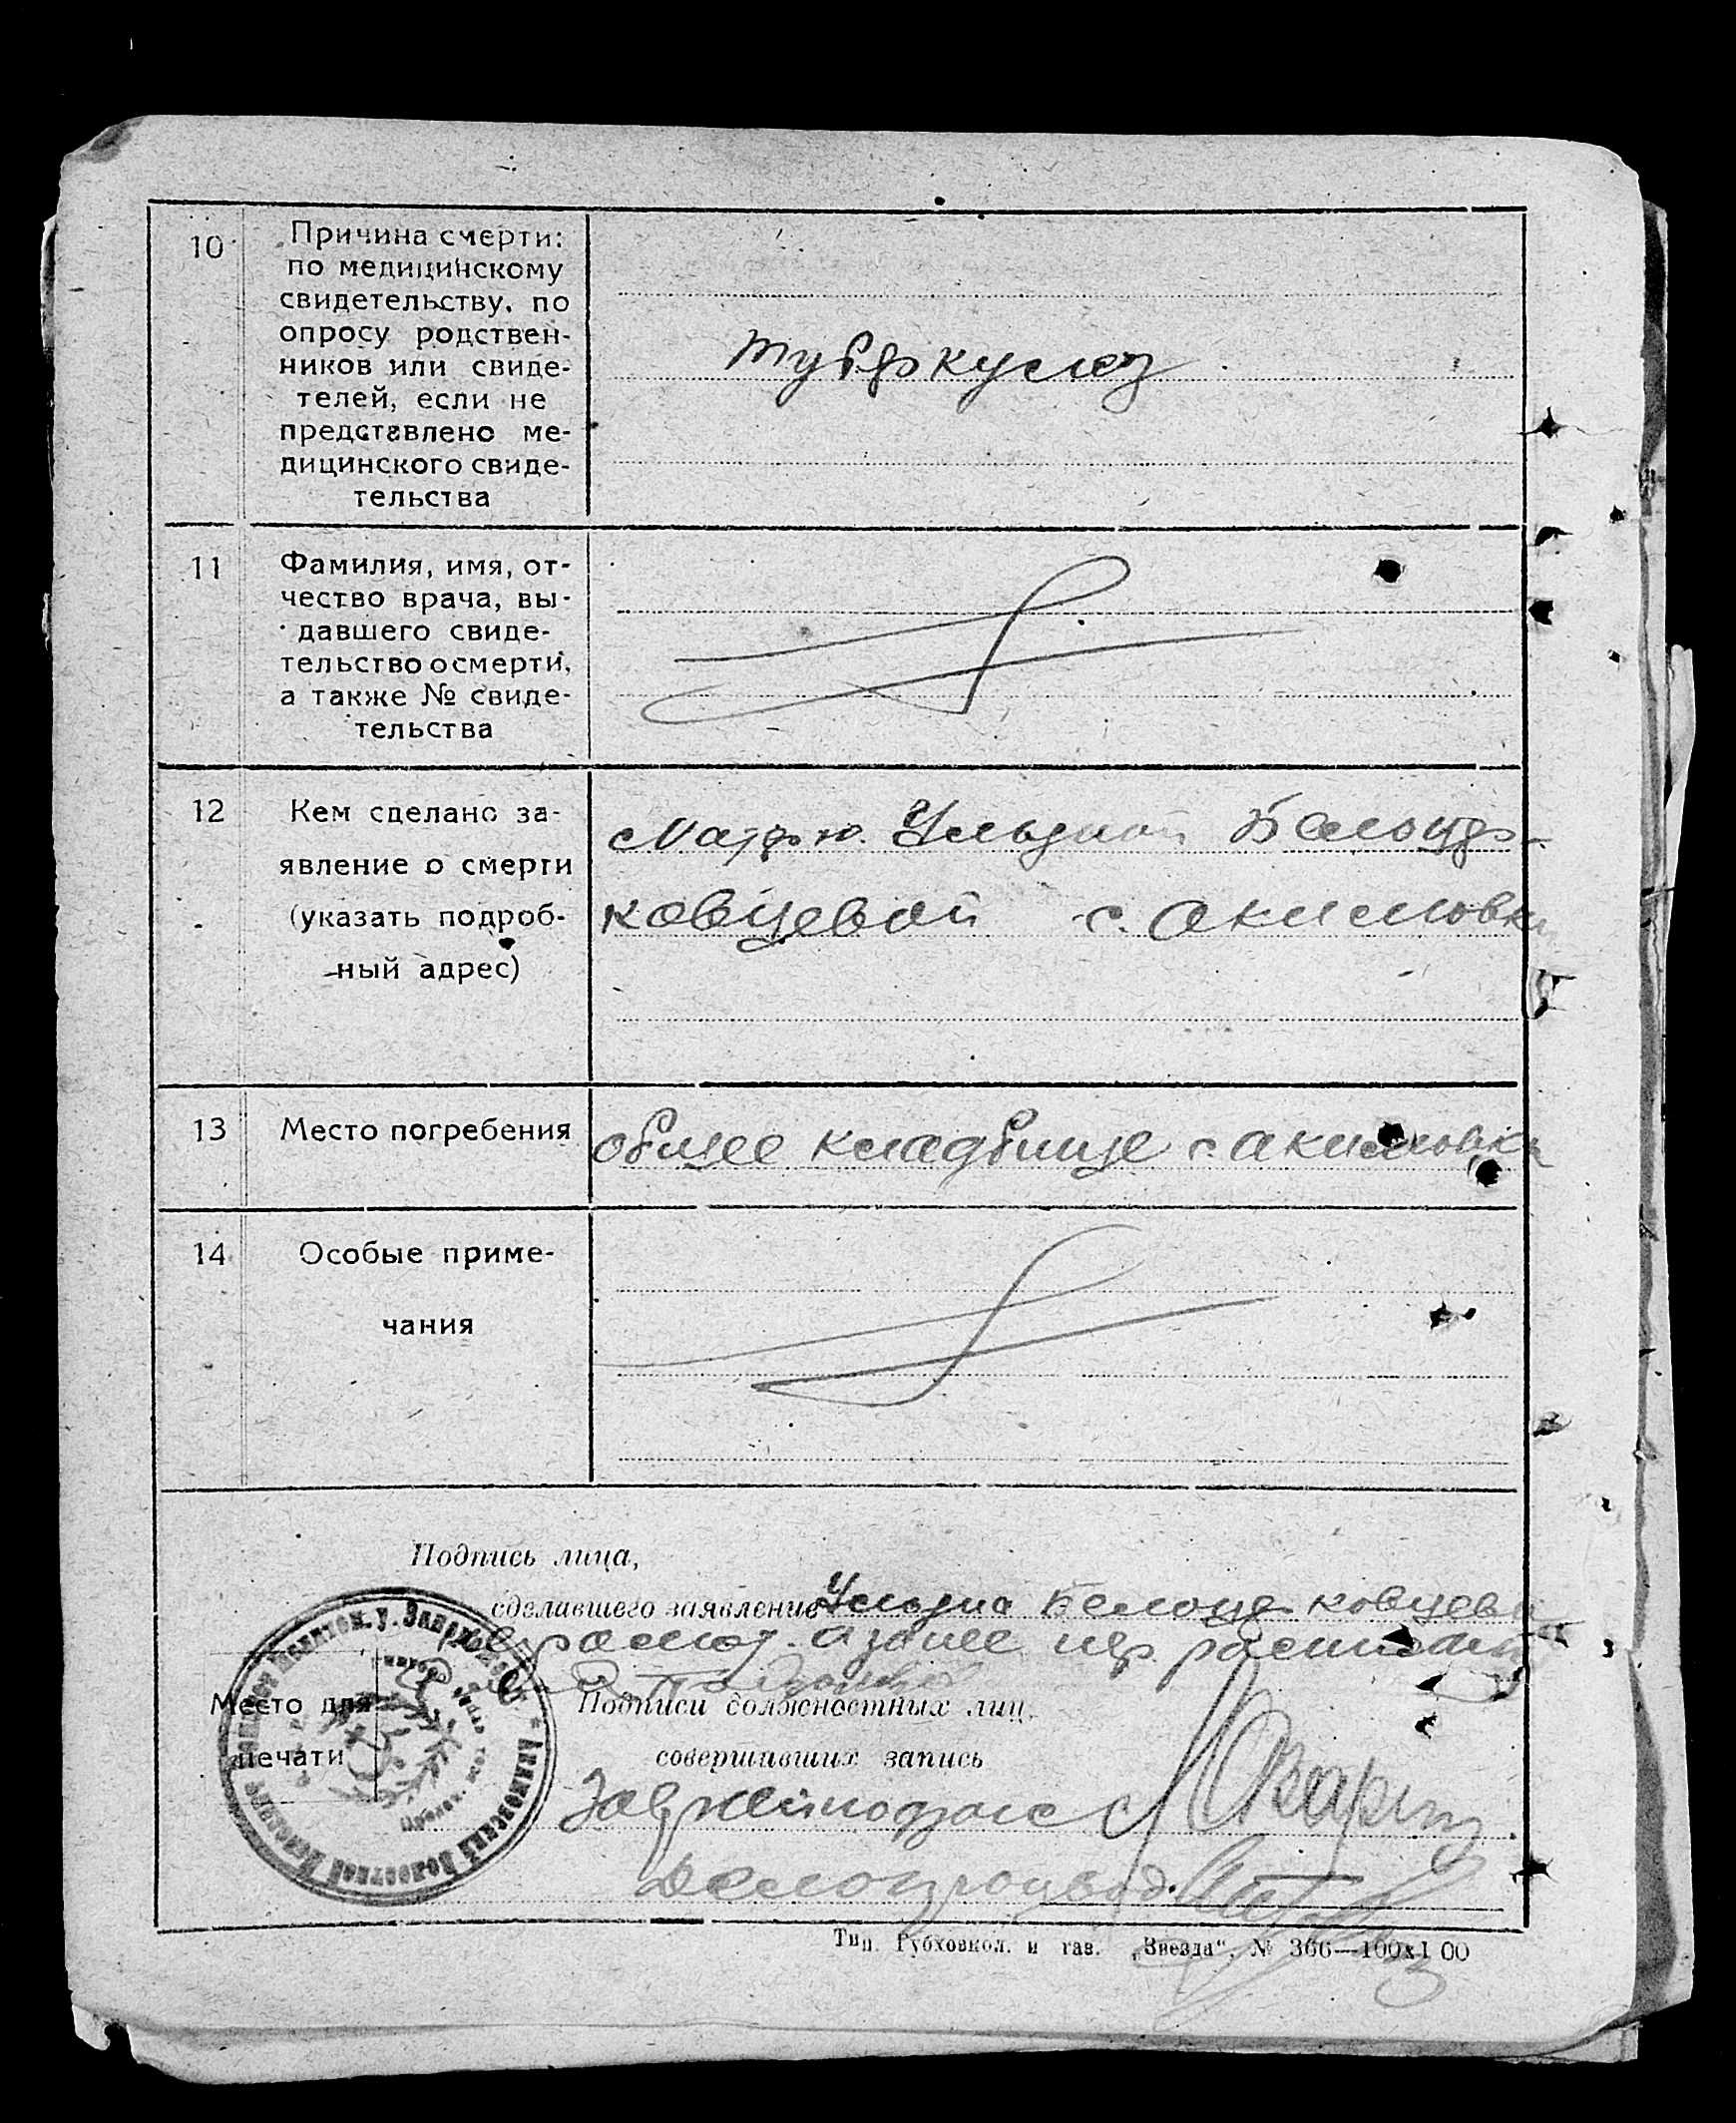 10
Причина смерти:
по медицинскому
свидетельству, по
опросу родствен-
ников или свиде-
телей, если не
представлено ме-
дицинского свиде-
тельства
туберкулез
11
Фамилия, имя, от-
чество врача, вы-
давшего свиде-
тельство о смерти,
а также № свиде-
тельства
12
Кем сделано за-
явление о смерти
(указать подроб-
ный адрес)
Матерю Ульяной Белоцер-
ковцевой с. Акимовки
13
Место погребения
общее кладбище с Акимовки
14
Особые приме-
чания
Подпись лица,
сделавшего заявление Ульяна Белоцерковцева
Место для
печати
Подписи должностных лиц,
совершивших запись
Зав
Делопроизвод.
Тип. Губховкол. и газ. „Звезда“. № 366—100х1 00